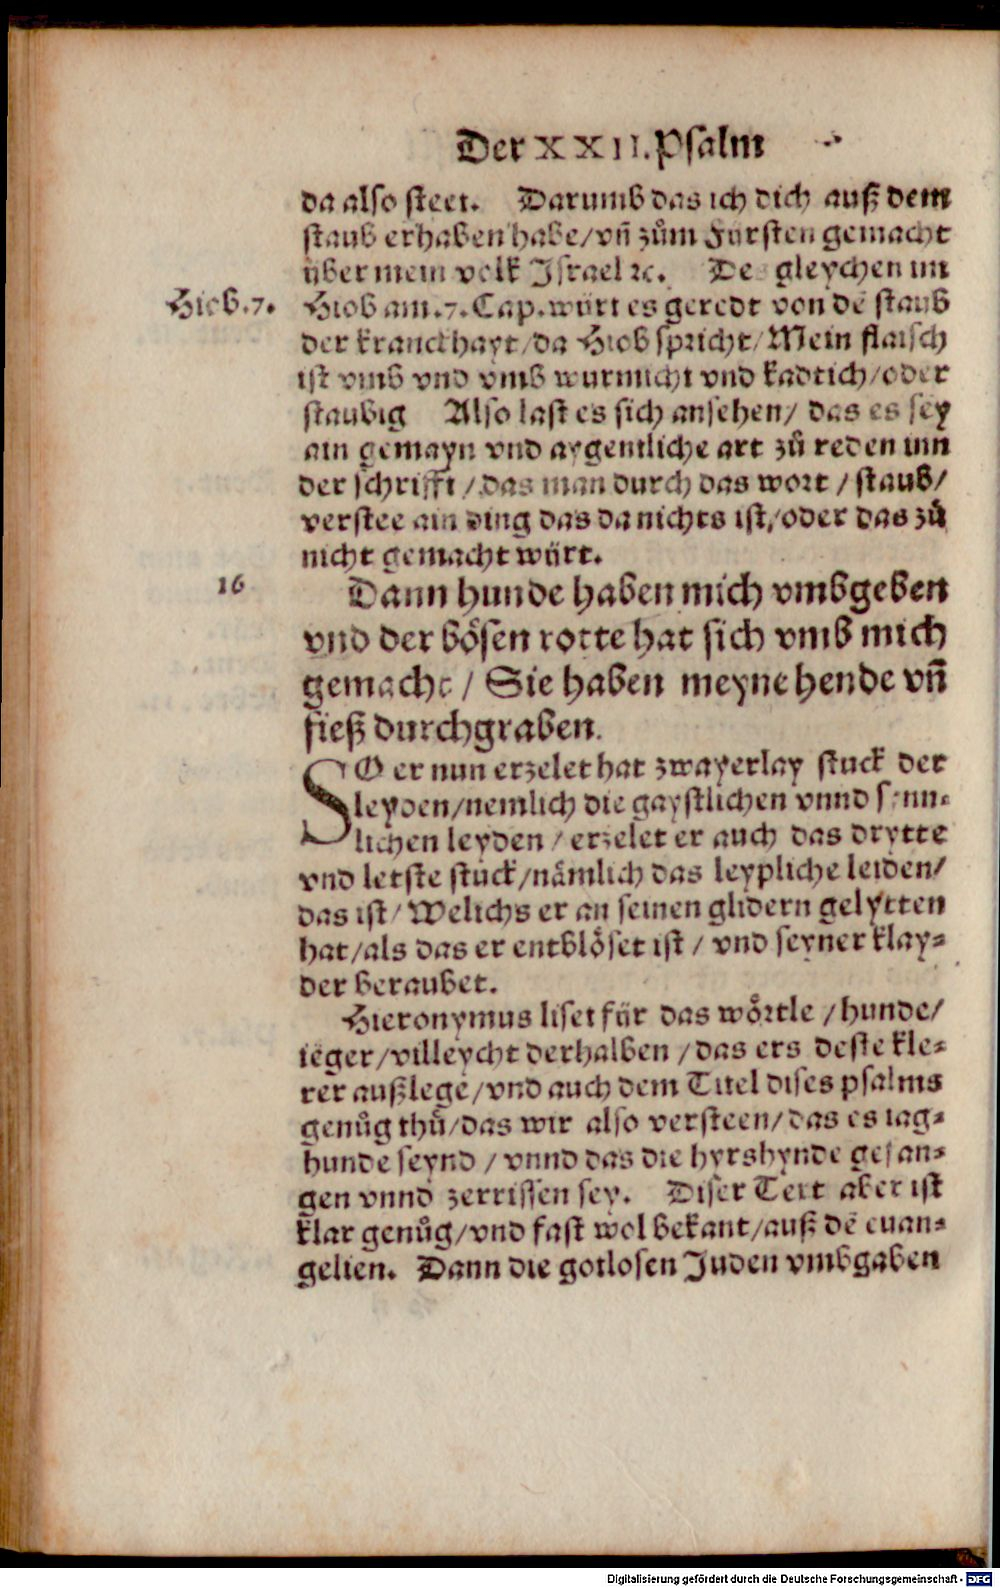 Der XXII. Psalm
da also steet. Darumb das ich dich auß dem
staub erhaben habe/ vñ zům Fürsten gemacht
über mein volk Israel ꝛc. Des gleychen im
Hiob.7.
Hiob am .7. Cap. würt es geredt von dẽ staub
der kranckhayt/ da Hiob spricht/ Mein flaisch
ist vmb vnd vmb wurmicht vnd kadtich/ oder
staubig Also last es sich ansehen/ das es sey
ain gemayn vnd aygentliche art zů reden inn
der schrifft/ das man durch das wort/ staub/
verstee ain ding das da nichts ist/ oder das zů
nicht gemacht würt.
16
Dann hunde haben mich vmbgeben
vnd der bösen rotte hat sich vmb mich
gemacht/ Sie haben meyne hende vñ
fieß durchgraben.
SO er nun erzelet hat zwayerlay stuck der
leyden/ nemlich die gaystlichen vnnd synn-
lichen leyden/ erzelet er auch das drytte
vnd letste stuck/ nämlich das leypliche leiden/
das ist/ Welichs er an seinen glidern gelytten
hat/ als das er entblöset ist/ vnd seyner klay-
der beraubet.
Hieronymus liset für das wörtle/ hunde/
ieger/ villeycht derhalben/ das ers deste kle-
rer außlege/ vnd auch dem Titel dises psalms
genůg thů/ das wir also versteen/ das es iag-
hunde seynd/ vnnd das die hyrshynde gefan-
gen vnnd zerrissen sey. Diser Text aber ist
klar genůg/ vnd fast wol bekant/ auß dẽ euan-
gelien. Dann die gotlosen Juden vmbgaben
Digitalisierung gefördert durch die Deutsche Forschungsgemeinschaft - DFG